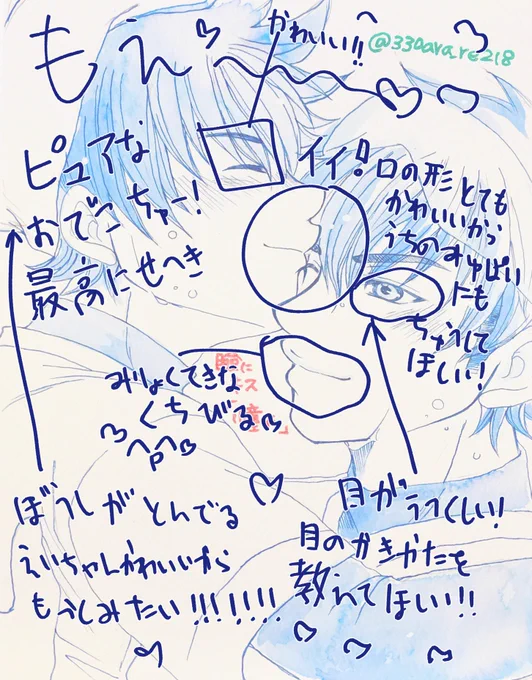 もえ〜
かわいい!!
@330ara_re218
ピュアな
おでこちゅー!
最高にせへき
イイ!口の形とても
かわいいから
うちのみゆぱい
にも
ちゅうして
ほしい!
みりょくてきな
くちびる
ぼうしがとんでる
えいちゃんかわいいから
もっとみたい!!!!!!!
目がうつくしい!
目のかきかたを
教えてほしい!!